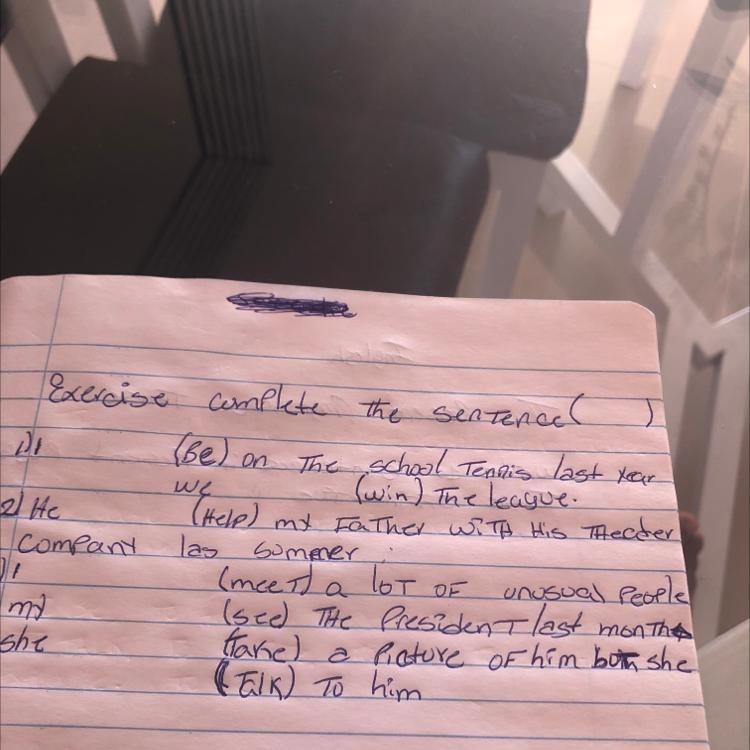 Exercise complete the sentence( )
1)I (Be) on The school Tennis last year
we (win) The league.
2) He (Help) my FaTHer wiTH His THeater
company las summer.
)I (meeT) a loT OF unusual People
my (see) THe PresidenT last month
she (Take) a Picture OF him but she
(Talk) To him